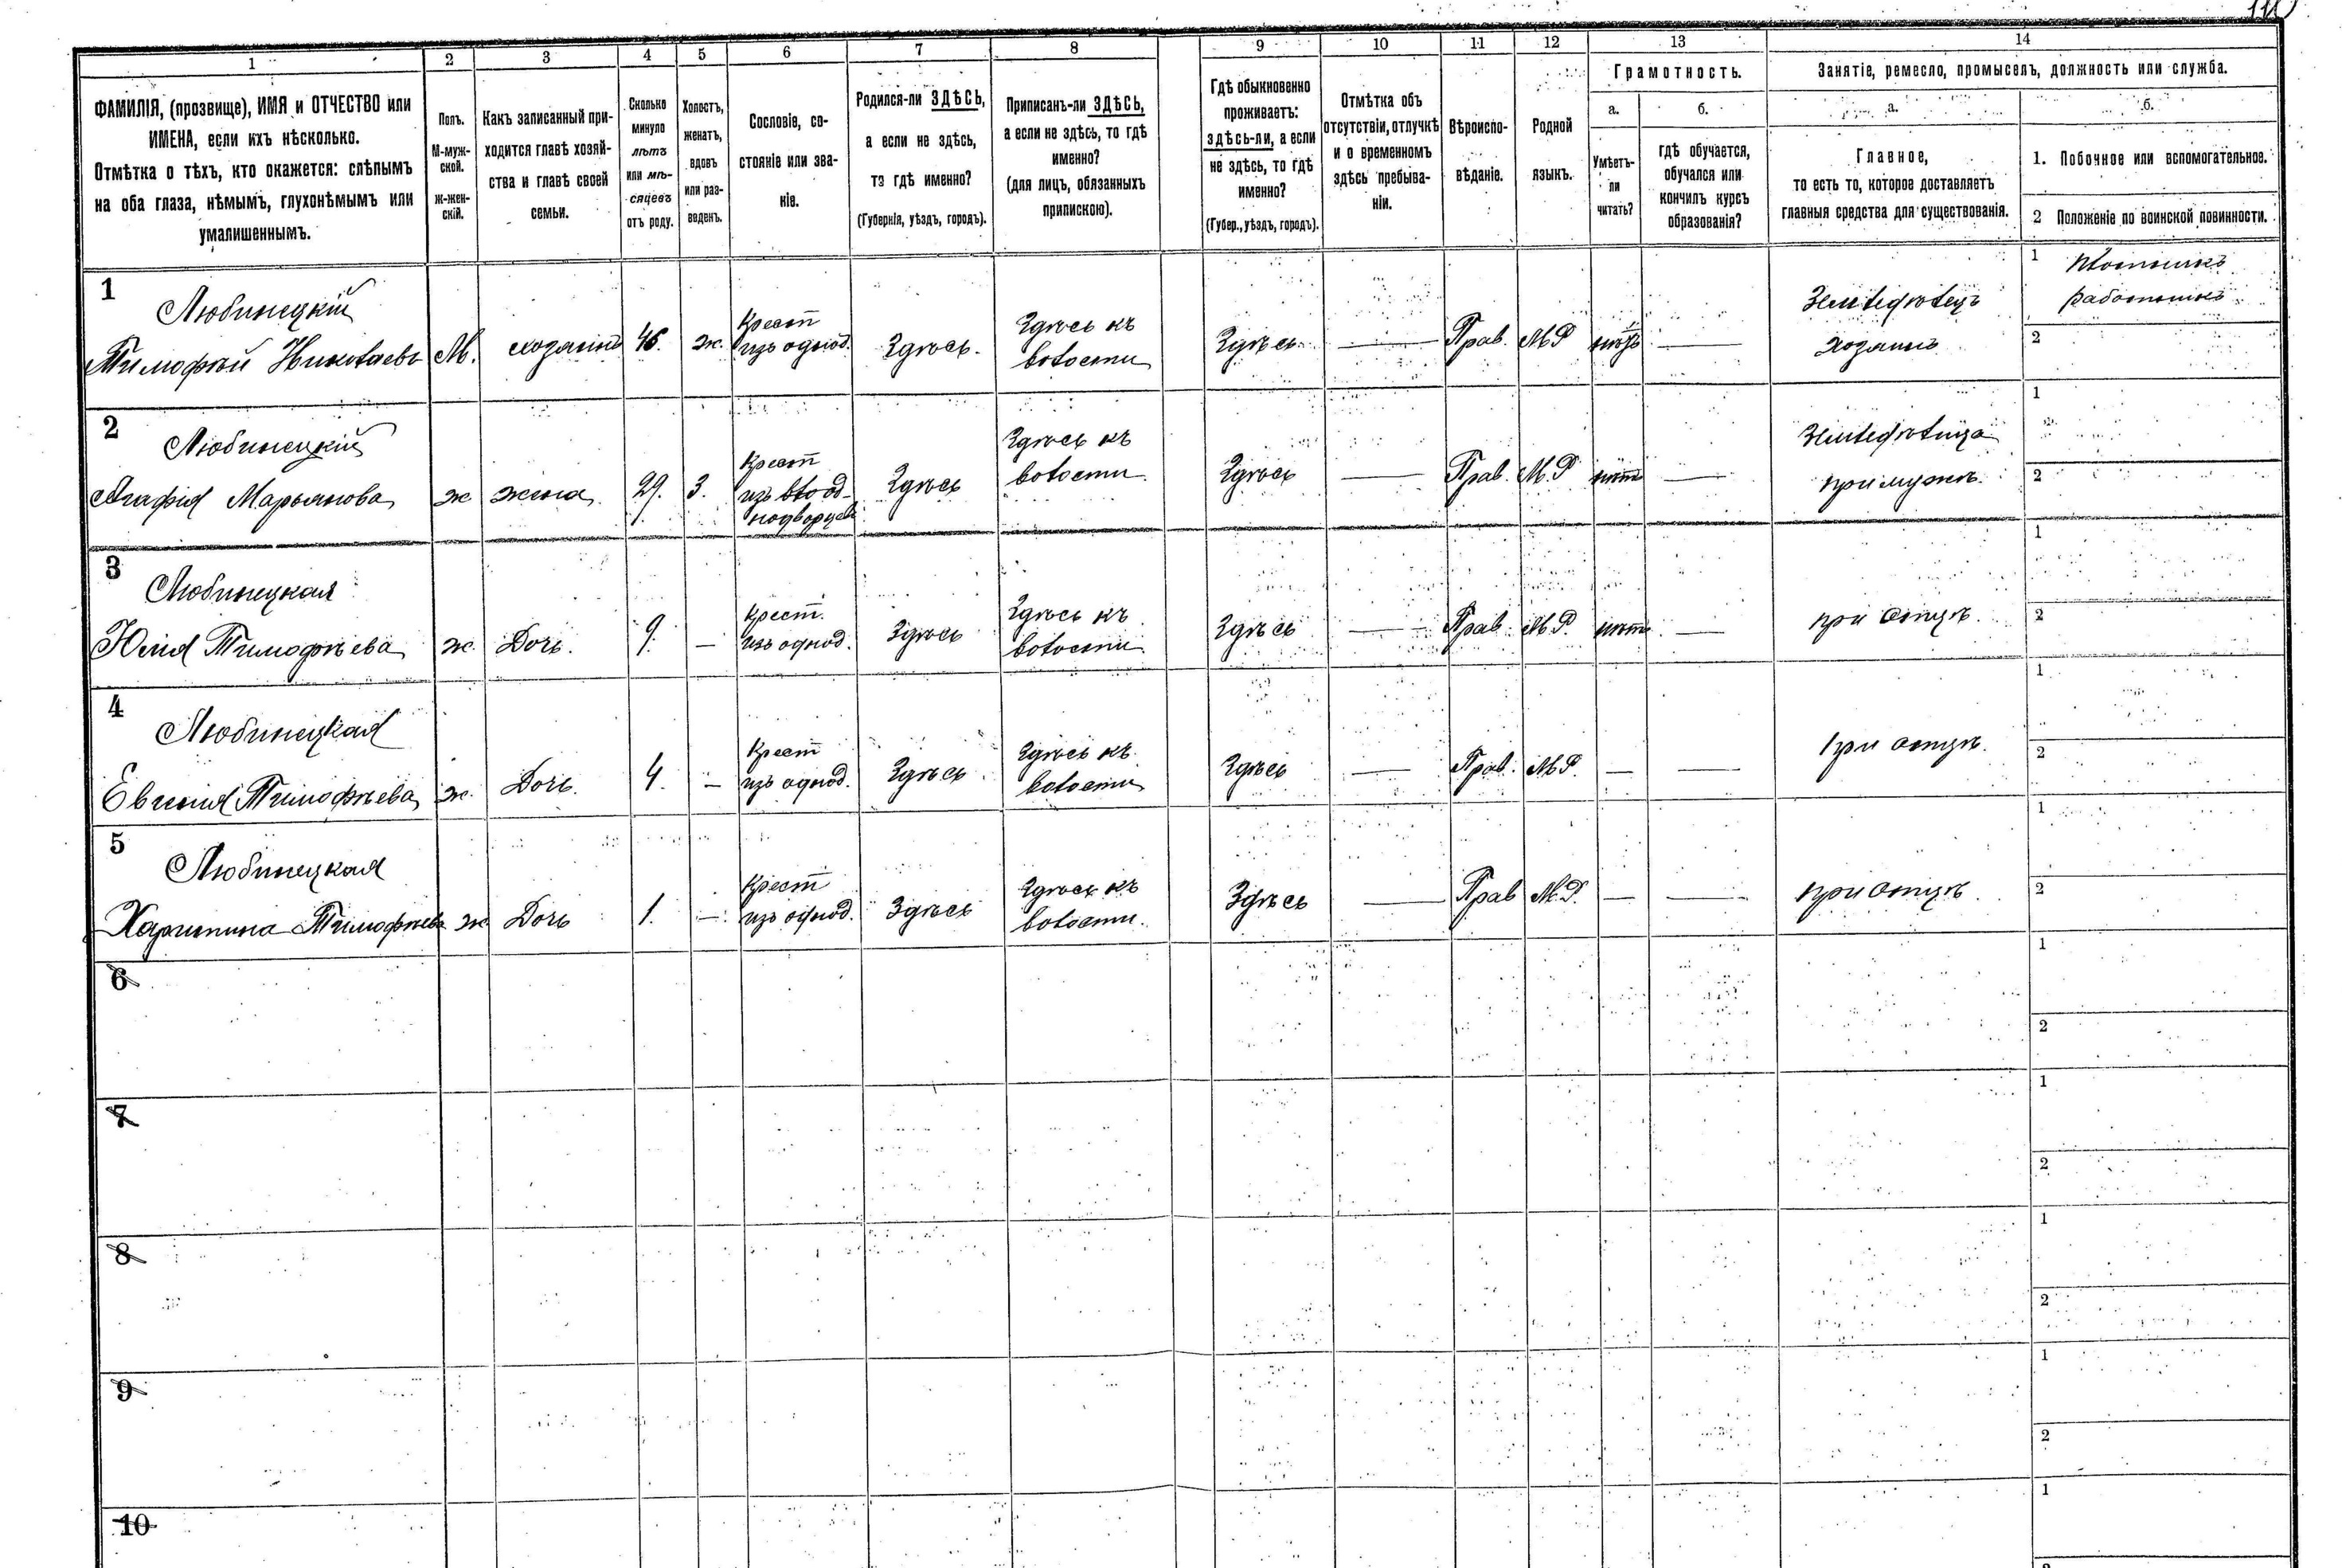 1 2 3 4 5 6 7 8 9 10 11 12 13 14
ФАМИЛІЯ, (прозвище), ИМЯ и ОТЧЕСТВО или
ИМЕНА, если ихъ нѣсколько.
Отмѣтка о тѣхъ, кто окажется: слѣпымъ
на оба глаза, нѣмымъ, глухонѣмымъ или
умалишеннымъ.
Полъ.
М-муж-
ской.
ж-жен-
скій.
Какъ записанный при-
ходится главѣ хозяй-
ства и главѣ своей
семьи.
Сколько
минуло
лѣтъ
или мѣ-
сяцевъ
отъ роду.
Холостъ,
женатъ,
вдовъ
или раз-
веденъ.
Сословіе, со-
стояніе или зва-
ніе.
Родился-ли ЗДѢСЬ,
а если не здѣсь,
тз гдѣ именно?
(Губернія, уѣздъ, городъ).
Приписанъ-ли ЗДѢСЬ,
а если не здѣсь, то гдѣ
именно?
(для лицъ, обязанныхъ
припискою).
Гдѣ обыкновенно
проживаетъ:
здѣсь-ли, а если
не здѣсь, то гдѣ
именно?
(Губер., уѣздъ, городъ).
Отмѣтка объ
отсутствіи, отлучкѣ
и о временномъ
здѣсь пребыва-
ніи.
Вѣроиспо-
вѣданіе.
Родной
языкъ.
Грамотность.
а.
Умѣетъ-
ли
читать?
б.
гдѣ обучается,
обучался или
кончилъ курсъ
образованія?
Занятіе, ремесло, промыселъ, должность или служба.
а.
Главное,
то есть то, которое доставляетъ
главныя средства для существованія.
б.
1. Побочное или вспомогательное.
2 Положеніе по воинской повинности.
1
Любинецкій
Тимофѣй Николаевъ
М.
хозяинъ
46.
ж.
Крест
изъ однод.
Здѣсь.
Здѣсь къ
волости
Здѣсь.
—
Прав.
М.Р
нѣтъ
—
Земледѣлецъ
хозяинъ
1 Плотникъ
работникъ
2
2
Любинецкій
Агафія Марьянова
ж
жена
29.
З.
Крест
изъ
Здѣсь
Здѣсь къ
волости
Здѣсь
—
Прав.
М.Р
нѣтъ
—
Земледѣлица
при мужѣ.
1
2
3
Любинецкая
Юлія Тимофѣева
ж.
Дочь.
9.
—
Крест.
изъ однод.
Здѣсь
Здѣсь къ
волости
Здѣсь
—
Прав.
М.Р.
нѣтъ
—
при отцѣ.
1
2
4
Любинецкая
Евгенія Тимофѣева
ж.
Дочь.
4.
—
Крест
изъ однод.
Здѣсь
Здѣсь къ
волости
Здѣсь
—
Прав.
М.Р.
—
—
при отцѣ.
1
2
5
Любинецкая
Харитина Тимофѣева
ж
Дочь
1.
—
Крест
изъ однод.
Здѣсь
Здѣсь къ
волости.
Здѣсь
—
Прав
М.Р.
—
—
при отцѣ
1
2
6
1
2
7
1
2
8
1
2
9
1
2
10
1